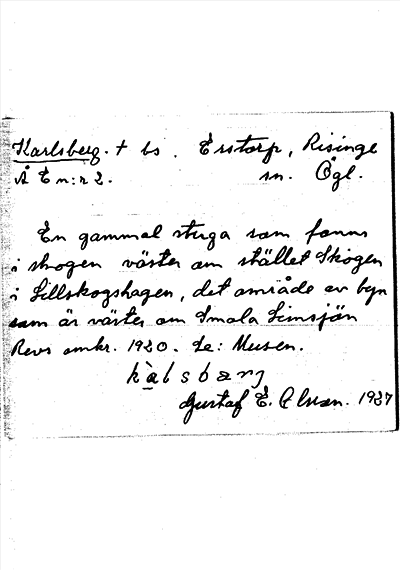 Karlsberg. † bs. Erstorp, Risinge
Å E n:r 2. sn. Ögl.
En gammal stuga som fanns
i skogen väster om stället Skogen
i Lillskogshagen, det område av byn
som är väster om Smala Simsjön
Revs omkr. 1920. Se: Musen.
kàlsbærj
Gustaf E. Olsson. 1937